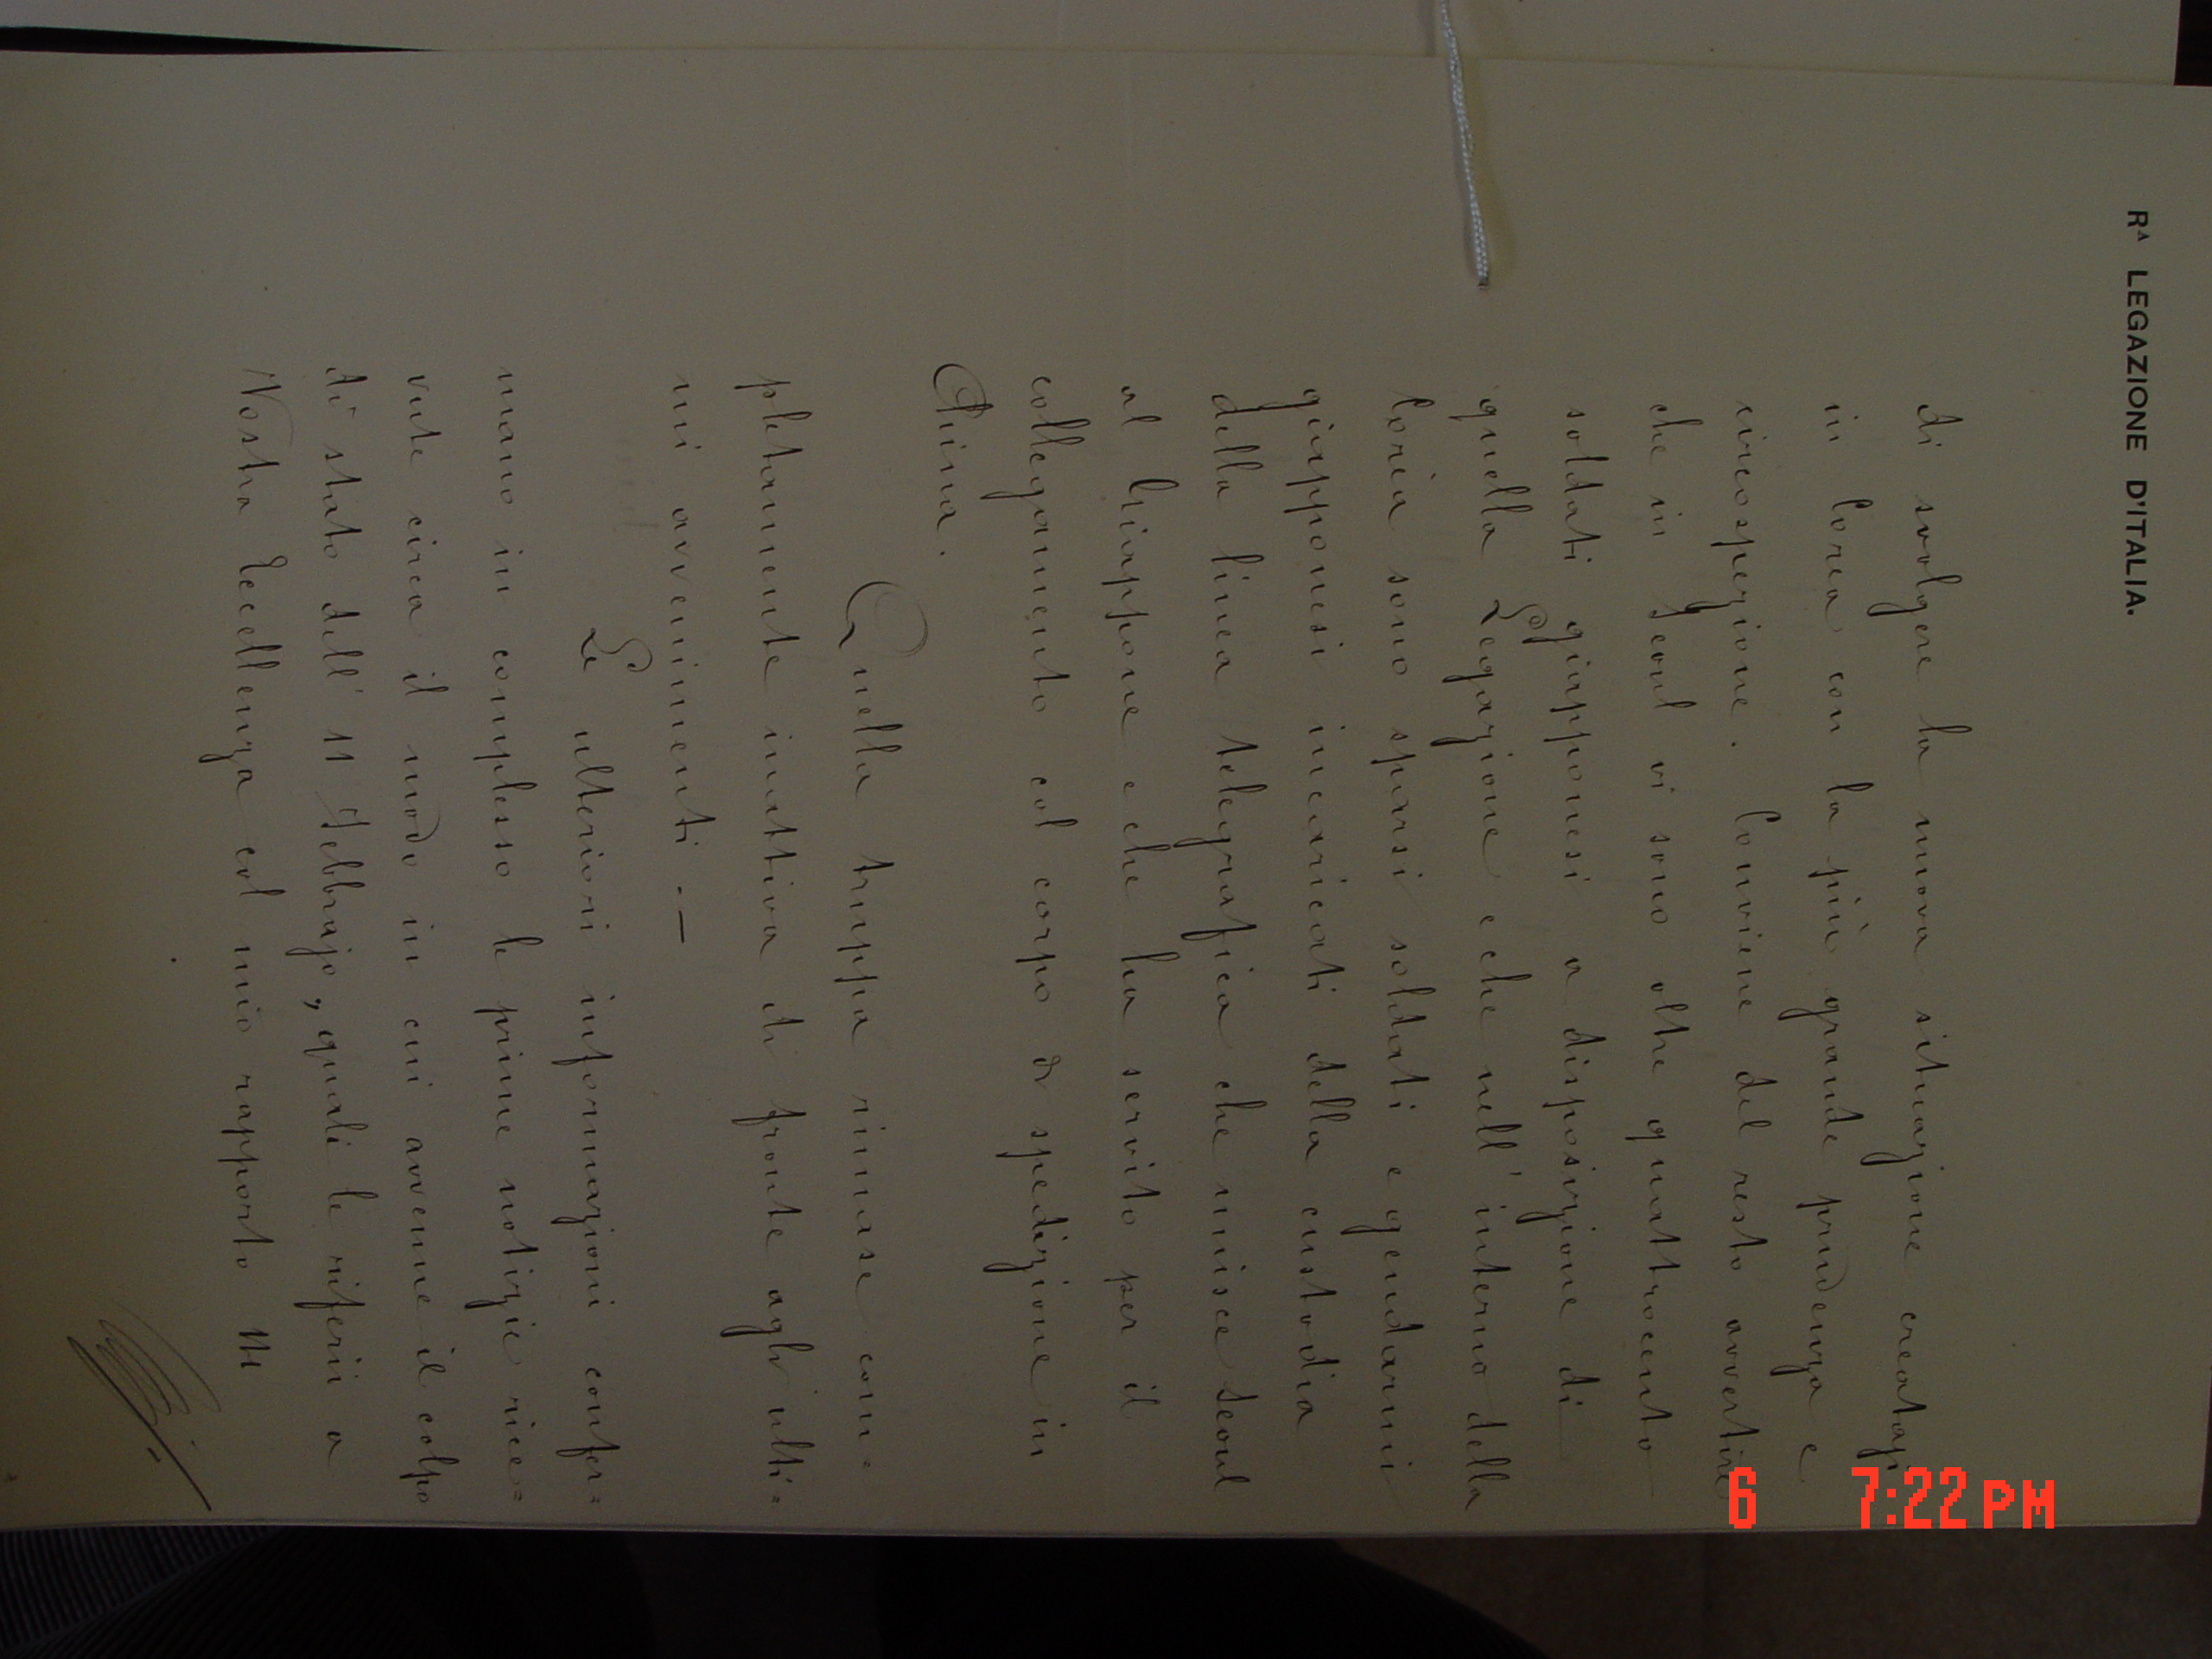 RA LEGAZIONE D'ITALIA.
di svolgere la nuova situazione creatasi
in Corea con la più grande prudenza e
circospezione. Conviene del resto avvertire
che in Seoul vi sono oltre quattrocento
soldati giapponesi a disposizione di
quella Legazione e che nell'interno della
Corea sono sparsi soldati e gendarmi
giapponesi incaricati della custodia
della linea telegrafica che unisce Seoul
al Giappone e che ha servito per il
collegamento col corpo di spedizione in
China.
Quella truppa rimase com=
pletamente inattiva di fronte agli ulti=
mi avvenimenti.—
Le ulteriori informazioni confer=
mano in complesso le prime notizie rice=
vute circa il modo in cui avvenne il colpo
di stato dell'11 Febbrajo, quali le riferii a
Vostra Eccellenza col mio rapporto
6 7:22 PM